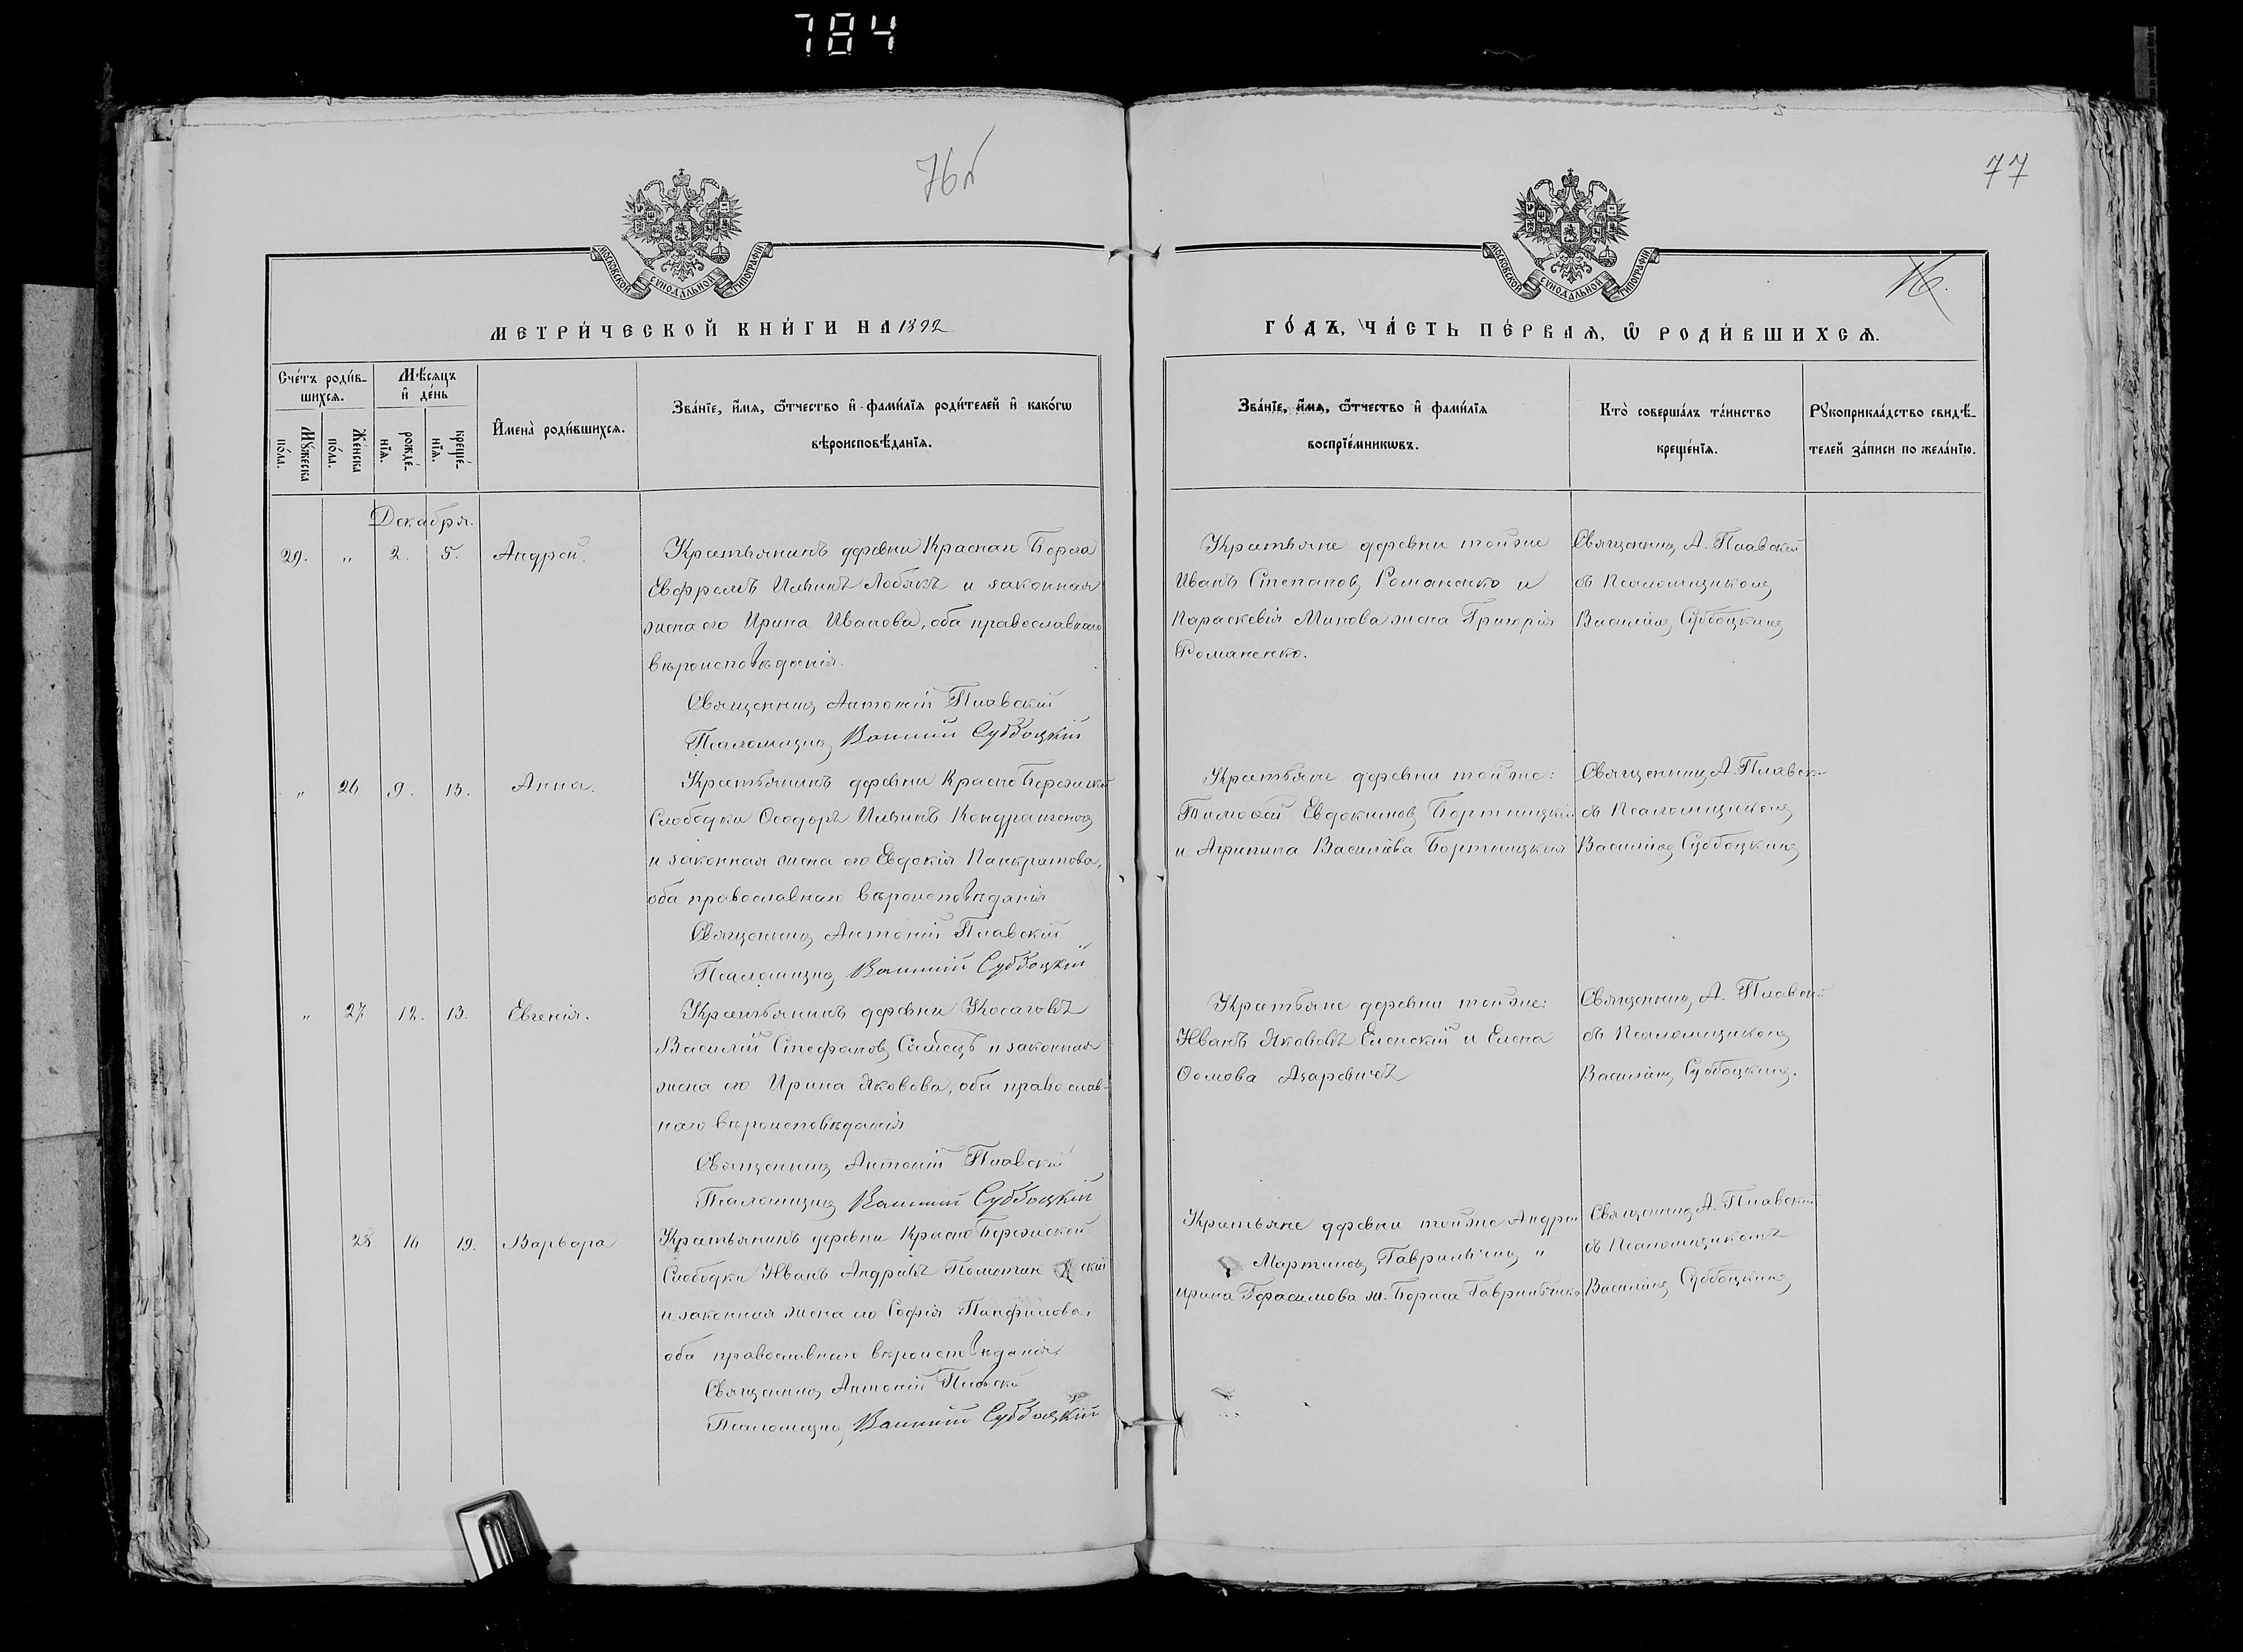 784
76б
77
16.
МОСКОВСКОЙ СУНОДАЛЬНОЙ ТИПОГРАФІИ
МОСКОВСКОЙ СУНОДАЛЬНОЙ ТИПОГРАФІИ
МЕТРИ́ЧЕСКОЙ КНИ́ГИ НА 1892
ГО́ДЪ, ЧА́СТЬ ПЕ́РВАѦ, Ѿ РОДИ́ВШИХСѦ.
Сче́тъ роди́в-
шихсѧ.
Мꙋ́жеска
по́ла.
Же́нска
по́ла.
Мѣ́сѧцъ
и҆ де́нь
рожде́-
нїѧ.
креще́-
нїѧ.
И҆мена̀ роди́вшихсѧ.
Зва́нїе, и҆́мѧ, ѻ҆́тчество и҆ фами́лїѧ роди́телей и҆ како́гѡ
вѣроисповѣ́данїѧ.
Зва́нїе, и҆́мѧ, ѻ҆́тчество и҆ фами́лїѧ
воспрїе́мникѡвъ.
Кто̀ соверша́лъ та́инство
креще́нїѧ.
Рꙋкоприкла́дство свидѣ́-
телей за́писи по жела́нїю.
Декабря.
29. „ 2. 5. Андрей.
Крестьянинъ деревни Краснаго Берега
Евфремъ Ильинъ Лобякъ и законная
жена его Ирина Иванова, оба православнаго
вѣроисповѣданія.
Священникъ Антоній Плавскій
Псаломщикъ Василій Субботцкій
Крестьяне деревни тойже
Иванъ Степановъ Романенко и
Параскевія Минова жена Григорія
Романенко.
Священникъ А. Плавскій
съ Псаломщикомъ
Василіемъ Субботцкимъ
„ 26 9. 13. Анна.
Крестьянинъ деревни Красно Бережской
Слободки Ѳеодоръ Ильинъ Кондратеновъ
и законная жена его Евдокія Панкратова,
оба православнаго вѣроисповѣданія
Священникъ Антоній Плавскій
Псаломщикъ Василій Субботцкій
Крестьяне деревни тойже:
Тимоѳей Евдокимовъ Бортницкій
и Агрипина Василіева Бортницкая
Священникъ А. Плавскій
съ Псаломщикомъ
Василіемъ Субботцкимъ
„ 27 12. 13. Евгенія.
Крестьянинъ деревни Косаговъ
Василій Стефановъ и законная
жена его Ирина Яковова, оба православ-
наго вѣроисповѣданія
Священникъ Антоній Плавскій
Псаломщикъ Василій Субботцкій
Крестьяне деревни тойже:
Иванъ Якововъ Еленскій и Елена
Ѳомова Азаревичъ
Священникъ А. Плавскій
съ Псаломщикомъ
Василіемъ Субботцкимъ.
28 16 19. Варвара
Крестьянинъ деревни Красно Бережской
Слободки Иванъ Андреевъ
и законная жена его Софія Панфилова,
оба православнаго вѣроисповѣданія
Священникъ Антоній Плавскій
Псаломщикъ Василій Субботцкій
Крестьяне деревни тойже Андрей
Мартиновъ и
Ирина Герасимова ж. Бориса
Священникъ А. Плавскій
съ Псаломщикомъ
Василіемъ Субботцкимъ